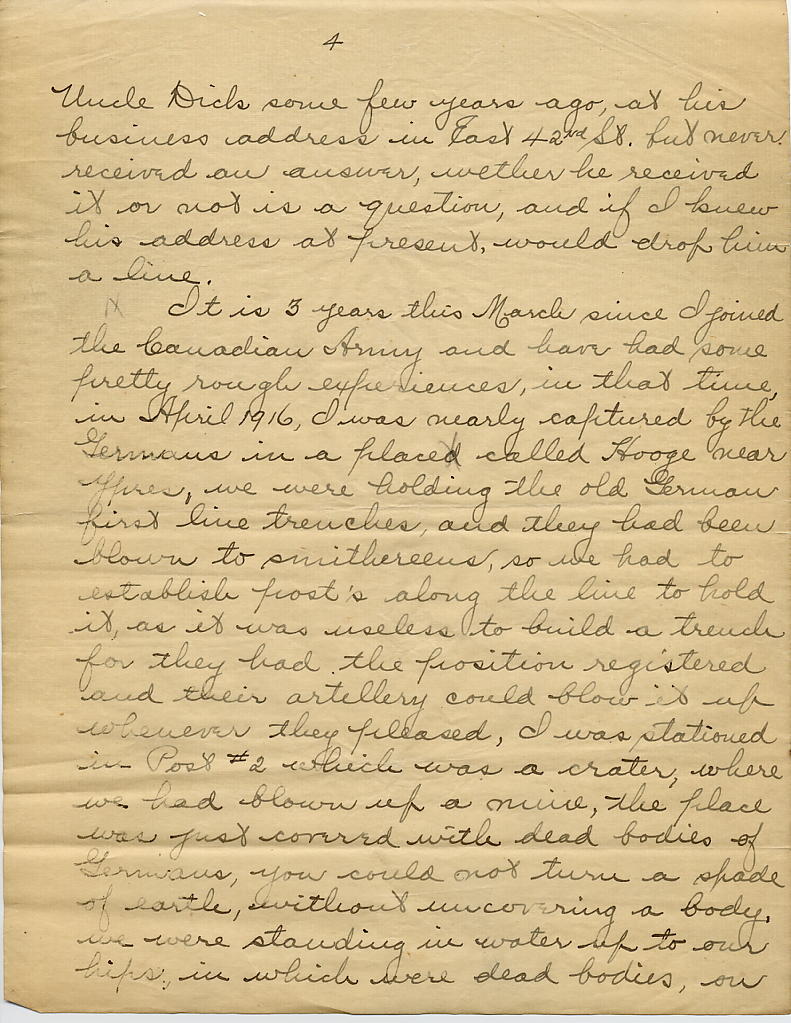 4
Uncle Dick some few years ago, at his
business address in East 42nd St. but never
received an answer, wether he received
it or not is a question, and if I knew
his address at present, would drop him
a line.
It is 3 years this March since I joined
the Canadian Army and have had some
pretty rough experiences, in that time,
in April 1916, I was nearly captured by the
Germans in a placed called Hooge near
Ypres, we were holding the old German
first line trenches, and they had been
blown to smithereens, so we had to
establish post's along the line to hold
it, as it was useless to build a trench
for they had the position registered
and their artillery could blow it up
whenever they pleased, I was stationed
in Post #2 which was a crater, where
we had blown up a mine, the place
was just covered with dead bodies of
Germans, you could not turn a spade
of earth, without uncovering a body,
we were standing in water up to our
hips, in which were dead bodies, on